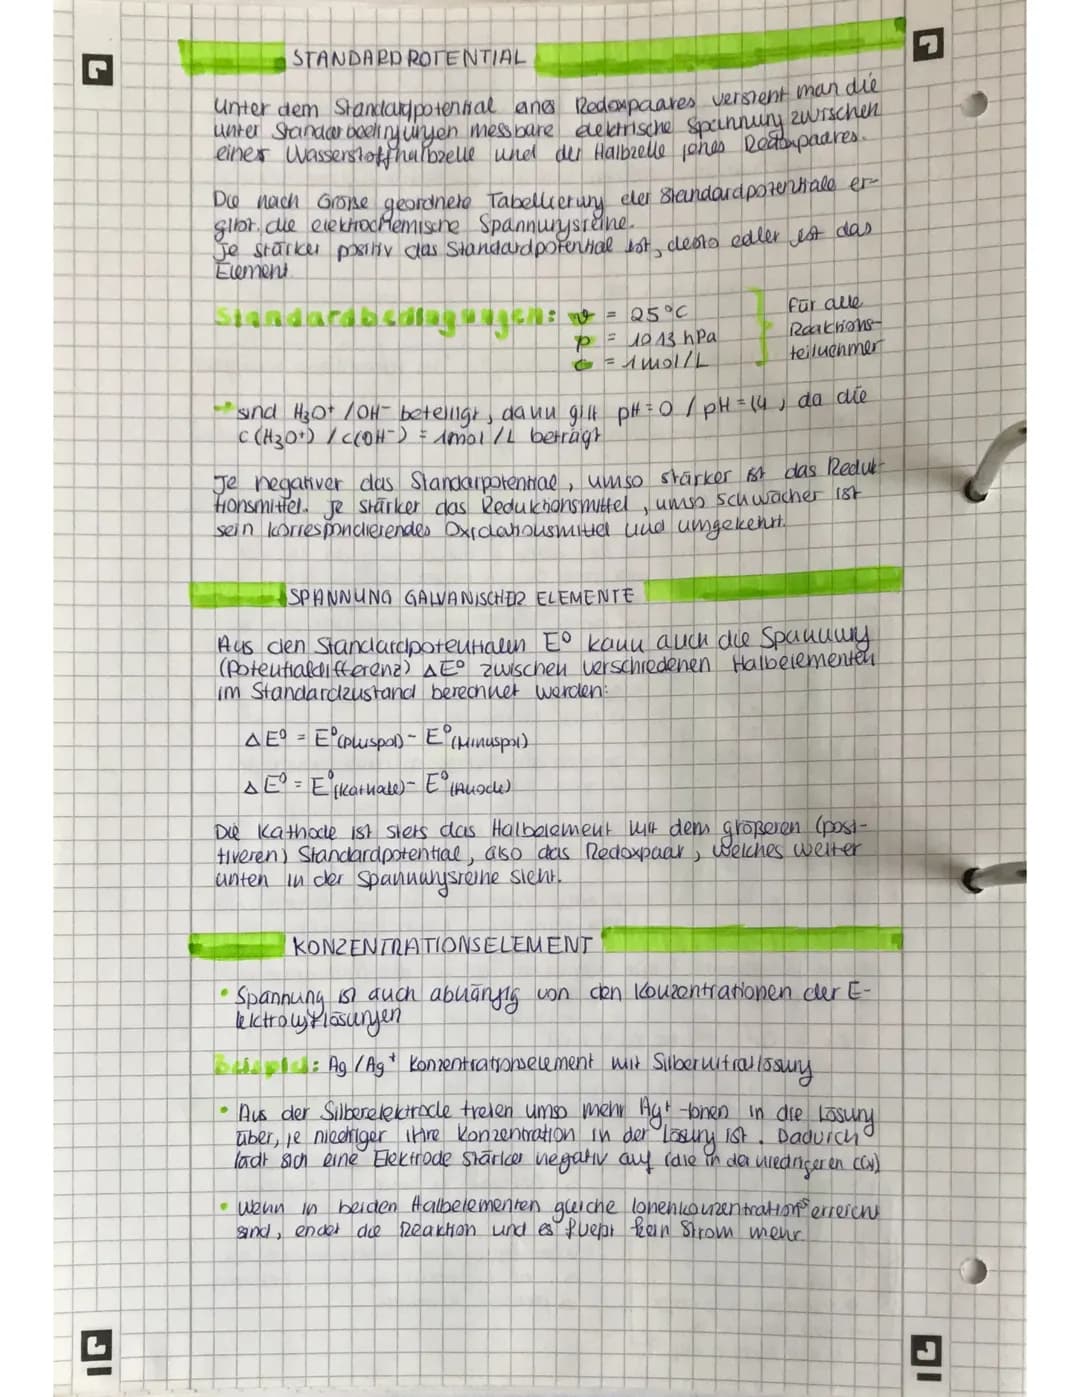 STANDARDPOTENTIAL
Unter dem Standardpotential eines Redoxpaares versteht man die
unter Standardbedingungen messbare elektrische Spannung zwischen
einer Wasserstoffhalbzelle und der Halbzelle jenes Redoxpaares.
Die nach Größe geordnete Tabellierung der Standardpotentiale er-
gibt die elektrochemische Spannungsreihe.
Je stärker positiv das Standardpotential ist, desto edler ist das
Element
Standardbedingungen: ϑ = 25°C
p = 1013 hPa
c = 1 mol/L
für alle
Reaktions-
teilnehmer
→ sind H3O+ / OH- beteiligt, dann gilt pH = 0 / pH = 14, da die
c (H3O+) / c(OH-) = 1mol/L beträgt
Je negativer das Standarpotential, umso stärker ist das Reduk-
tionsmittel. Je stärker das Reduktionsmittel, umso schwächer ist
sein korrespondierendes Oxidationsmittel und umgekehrt.
SPANNUNG GALVANISCHER ELEMENTE
Aus den Standardpotentialen E⁰ kann auch die Spannung
(Potentialdifferenz) ΔE⁰ zwischen verschiedenen Halbelementen
im Standardzustand berechnet werden:
ΔE⁰ = E⁰(Pluspol) - E⁰(Minuspol)
ΔE⁰ = E⁰(Kathode) - E⁰(Anode)
Die Kathode ist stets das Halbelement mit dem größeren (posi-
tiveren) Standardpotential, also das Redoxpaar, welches weiter
unten in der Spannungsreihe steht.
KONZENTRATIONSELEMENT
• Spannung ist auch abhängig von den Konzentrationen der E-
lektrolytlösungen
Beispiel: Ag / Ag+ Konzentrationselement mit Silbernitratlösung
• Aus der Silberelektrode treten umso mehr Ag+ -Ionen in die Lösung
über, je niedriger ihre Konzentration in der Lösung ist. Dadurch
lädt sich eine Elektrode stärker negativ auf (die in der niedrigeren c(x))
• Wenn in beiden Halbelementen gleiche Ionenkonzentrations erreicht
sind, endet die Reaktion und es fließt kein Strom mehr